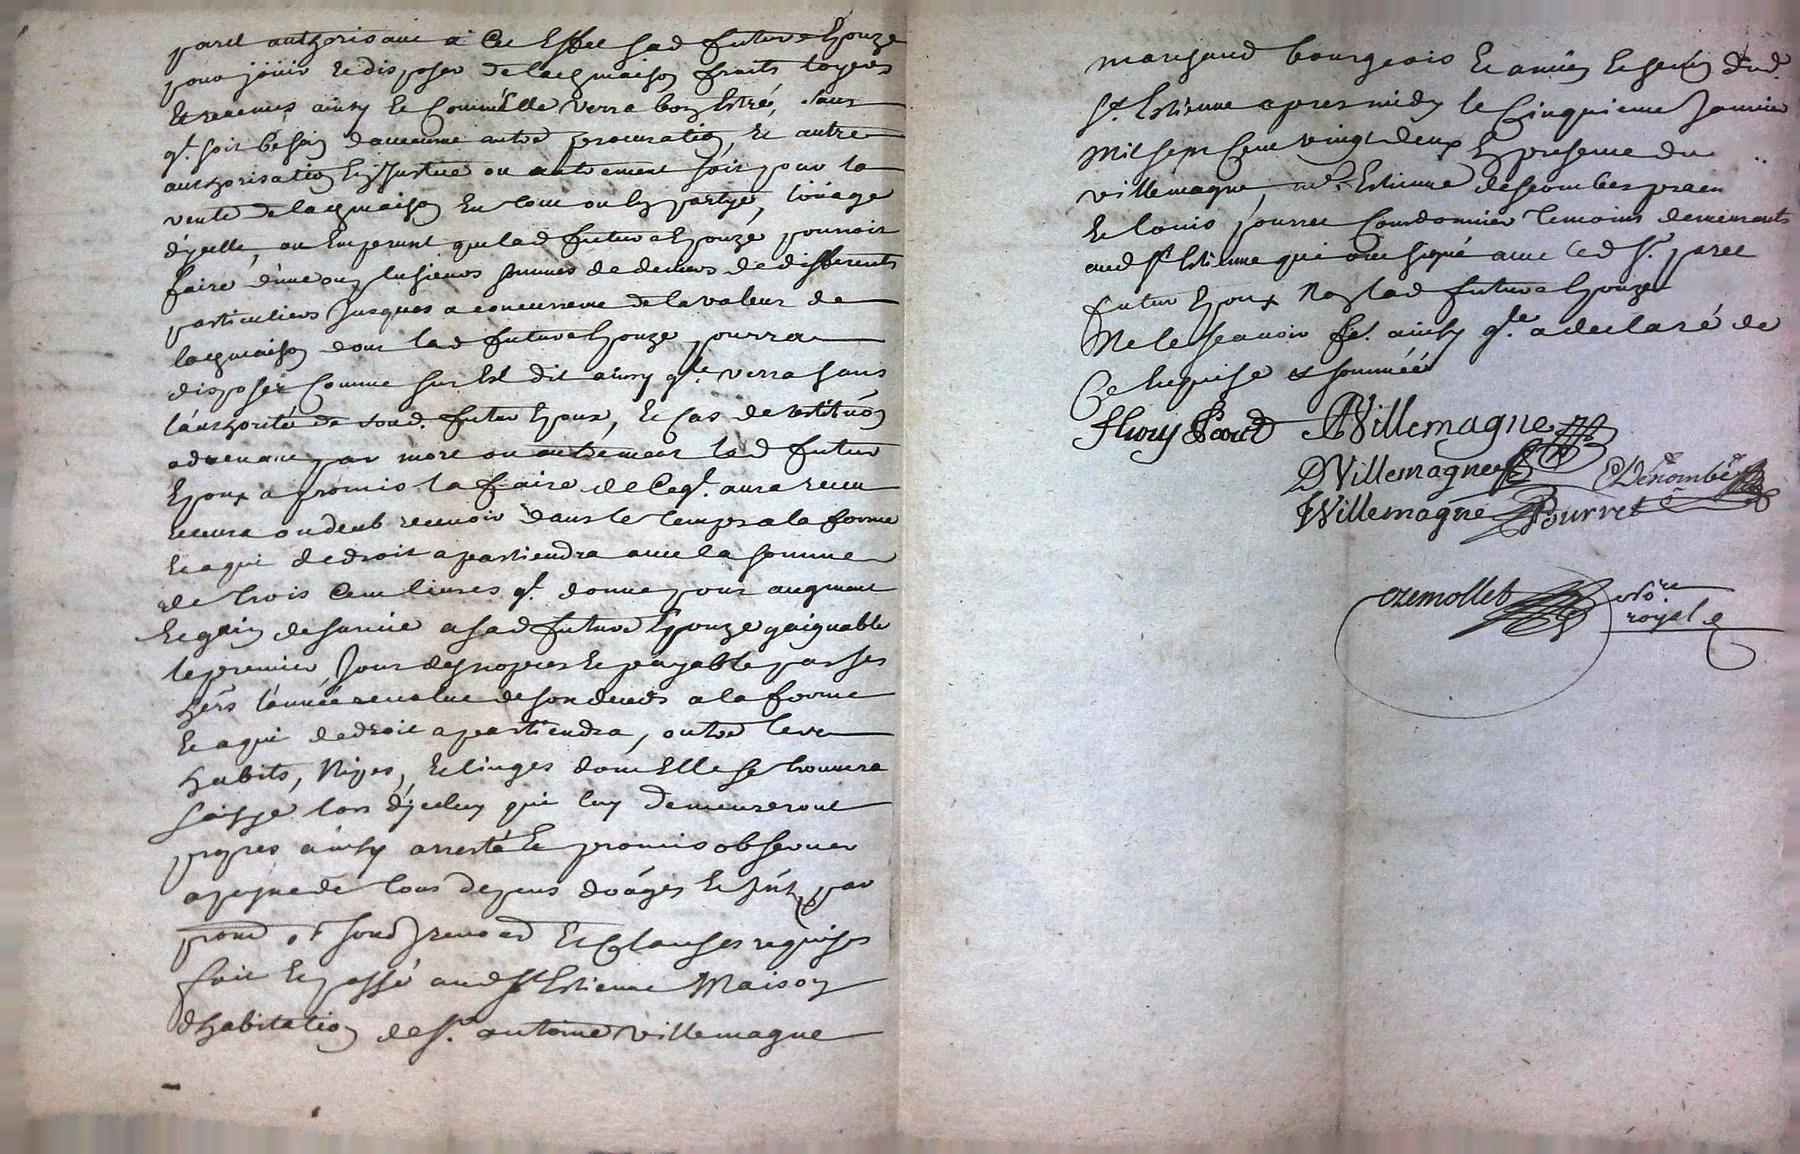 par et authorisant a cet effet sad future Epouze
pour jouir et disposer de lad maison fruits loyers
et revenus ainsy et comm'Elle verra bon Estre, sans
q.l soit besoin d'aucunne autre procuration, et autre
authorisation En Justice ou autrement soit pour la
vente de lad maison En tout ou En partye, louage
d'jcelle, ou Emprunt que lad future Epouze pourroit
faire d'une ou plusieurs sommes de deniers de differents
particuliers Jusques a concurrence de la valeur de
lad maison dont lad future Epouze pourra
disposer comme sus Est dit ainsy q.le verra sans
l'authorité de sond. futur Epoux, Et cas de restitu͠on
advenant par mort ou autrement led futur
Epoux a promis la faire de ce q.l aura receu
receura ou deub recevoir dans le temps a la forme
et a qui de droit apartiendra avec la somme
de trois cent livres q.l donne pour augment
et gain de survie a sad future Epouze gaignable
le premier Jour des nopces et payable par ses
hers l'année revolue de son deceds a la forme
et a qui de droit apartiendra, outre leur
habits, Nipes, et linges dont Elle se trouvera
saisye lors d'jceluy qui luy demeureront
propres ainsy arresté et promis observer
a peyne de tous depens doâges et jnts par
prom͠. o͠. soub͠. renon͠. et clauses requises
fait et passé aud S.t Estienne Maison
d'habitation de S.r antoine villemagne
marchand bourgeois et
S.t Estienne apres midy le Cinquieme Janvier
Mil sept cent vingt deux En presence du
villemagne, M.e Estienne descombes pra͠en
et louis pourret Cordonnier temoins demeurants
aud S.t Estienne qui ont signé avec led S.r
futur Epoux Non lad future Epouze
Ne le scavoir fe. ainsy q.le a declaré de
Ce Enquise & sommée
fleury A Villemagne
D Villemagne Descombe
J Villemagne Pourret
ozemollet No.re
royal